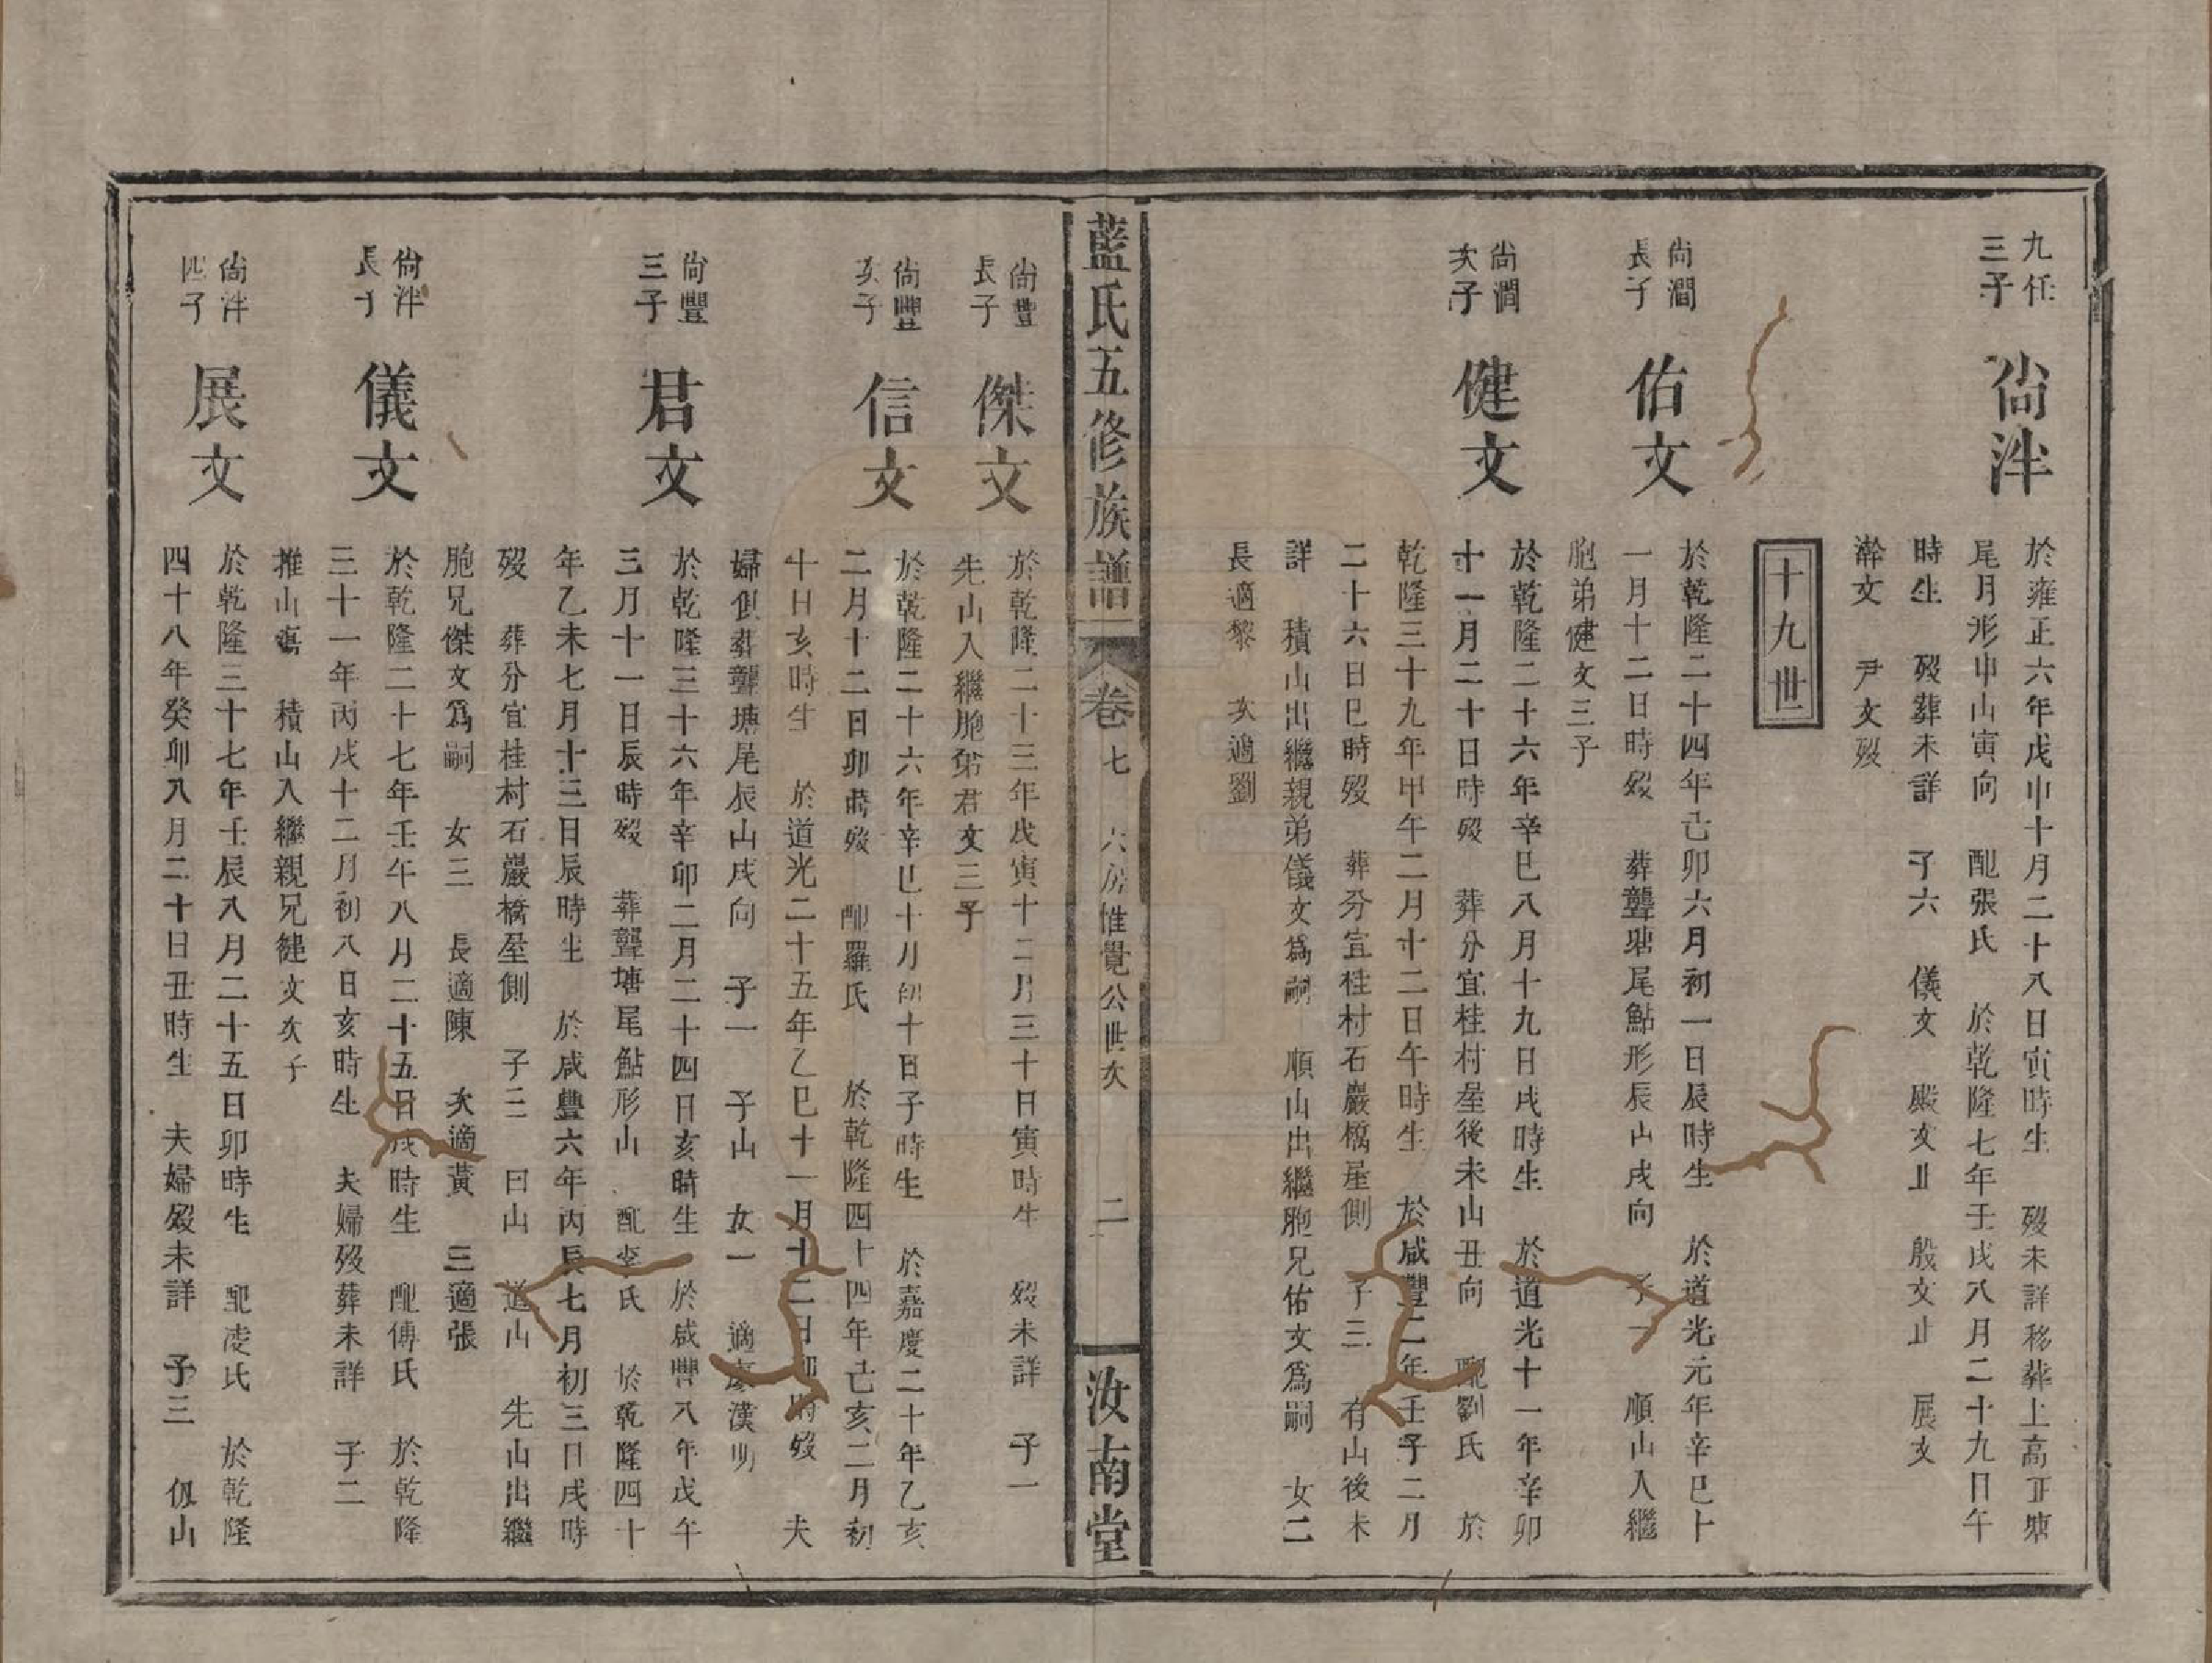 九任
三子
尙泮
於雍正六年戊申十月二十八日寅時生 歿未詳移葬上高正塘
尾月形申山寅向 配張氏 於乾隆七年壬戌八月二十九日午
時生 歿葬未詳 子六 儀文 殿文止 殷文止 展文
瀚文 尹文歿
十九世
尙澗
長子
佑文
於乾隆二十四年己卯六月初一日辰時生 於道光元年辛巳十
一月十二日時歿 葬聾塘尾鮎形辰山戌向 子一 順山入繼
胞弟健文三子
尙澗
次子
健文
於乾隆二十六年辛巳八月十九日戌時生 於道光十一年辛卯
十一月二十日時歿 葬分宜桂村屋後未山丑向 配劉氏 於
乾隆三十九年甲午二月十二日午時生 於咸豐二年壬子二月
二十六日巳時歿 葬分宜桂村石巖橋屋側 子三 有山後未
詳 積山出繼親弟儀文爲嗣 順山出繼胞兄佑文爲嗣 女二
長適黎 次適劉
藍氏五修族譜 卷七 六房惟覺公世次 二 汝南堂
尙豐
長子
傑文
於乾隆二十三年戊寅十二月三十日寅時生 歿未詳 子一
先山入繼胞弟君文三子
尙豐
次子
信文
於乾隆二十六年辛巳十月初十日子時生 於嘉慶二十年乙亥
二月十二日卯時歿 配羅氏 於乾隆四十四年己亥二月初
十日亥時生 於道光二十五年乙巳十一月十二日卯時歿 夫
婦俱葬聾塘尾辰山戌向 子一 予山 女一 適彥漢明
尙豐
三子
君文
於乾隆三十六年辛卯二月二十四日亥時生 於咸豐八年戊午
三月十一日辰時歿 葬聾塘尾鮎形山 配李氏 於乾隆四十
年乙未七月十三日辰時生 於咸豐六年丙辰七月初三日戌時
歿 葬分宜桂村石巖橋屋側 子三 曰山 道山 先山出繼
胞兄傑文爲嗣 女三 長適陳 次適黃 三適張
尙泮
長子
儀文
於乾隆二十七年壬午八月二十五日戌時生 配傅氏 於乾隆
三十一年丙戌十二月初八日亥時生 夫婦歿葬未詳 子二
推山寓 積山入繼親兄健文次子
尙泮
四子
展文
於乾隆三十七年壬辰八月二十五日卯時生 配凌氏 於乾隆
四十八年癸卯八月二十日丑時生 夫婦歿未詳 子三 伋山